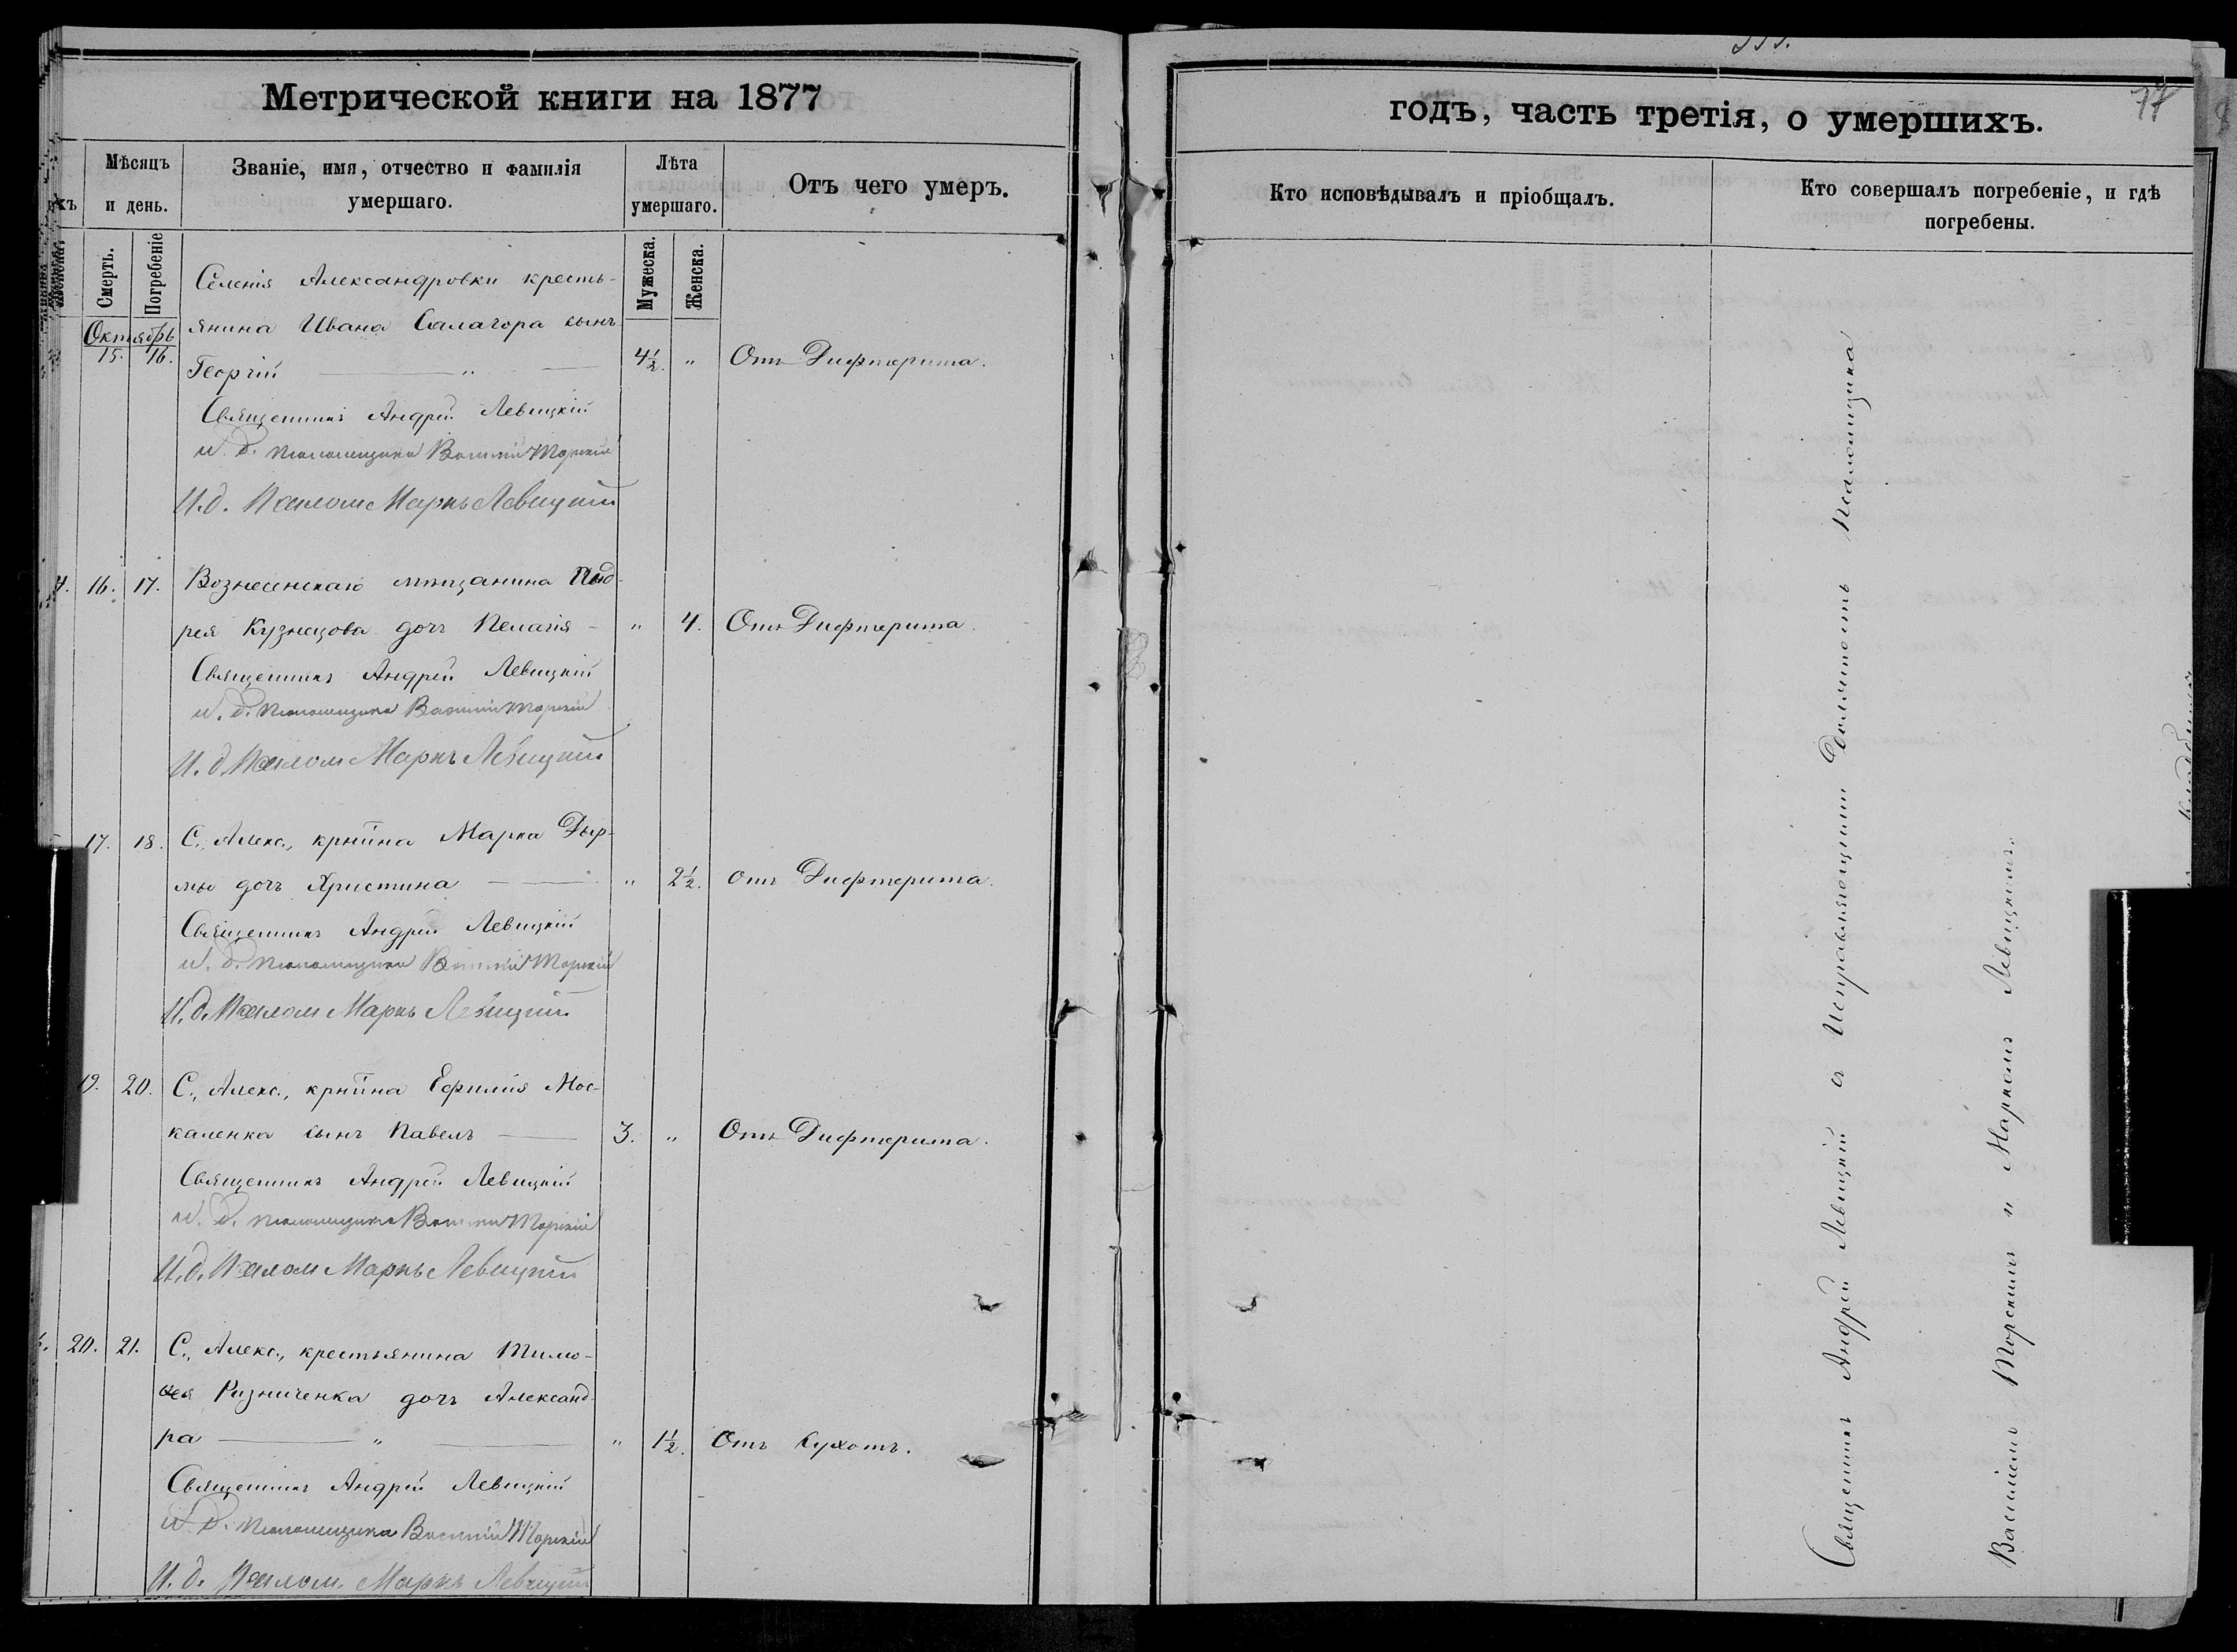 Метрической книги на 1877
Мѣсяцъ и день.
Званіе, имя, отчество и фамилія умершаго.
Лѣта умершаго.
Отъ чего умеръ.
Смерть.
Погребеніе
Мужеска.
Женска.
Октябрь
15. 16.
Селенія Александровки кресть-
янина Ивана Салагора сынъ
Георгій — „ — 4½. „ Отъ Дифтерита.
Священникъ Андрей Левицкій
и. д. псаломщика Василій Торскій
И.д. Псалом Маркъ Левицкій
16. 17. Вознесенскаго мѣщанина
рея Кузнецова дочь Пелагія - „ 4. Отъ Дифтерита.
Священникъ Андрей Левицкій
и. д. псаломщика Василій Торскій
И. д. Псалом Маркъ Левицкій
17. 18. С. Алекс., крнина Марка Дыр-
мы дочь Христина — „ 2½. отъ Дифтерита.
Священникъ Андрей Левицкій
и. д. псаломщика Василій Торскій
И. д. Псалом Маркъ Левицкій
19. 20. С., Алекс., крнина Ефимія Мос-
каленка сынъ Павелъ — 3. „ Отъ Дифтерита.
Священникъ Андрей Левицкій
и. д. псаломщика Василій Торскій
И. д. Псалом Маркъ Левицкій
20. 21. С., Алекс., крестьянина Тимо-
ѳея Ризниченка дочь Александ-
ра — „ — „ 1½. Отъ Сухотъ.
Священникъ Андрей Левицкій
и. д. псаломщика Василій Торскій
И. д. Псалом. Маркъ Левицкій
годъ, часть третія, о умершихъ.
77
Кто исповѣдывалъ и пріобщалъ.
Кто совершалъ погребеніе, и гдѣ погребены.
Священникъ Андрей Левицкій съ Исправляющими Должность Псаломщика
Василіемъ Торскимъ и Маркомъ Левицкимъ.